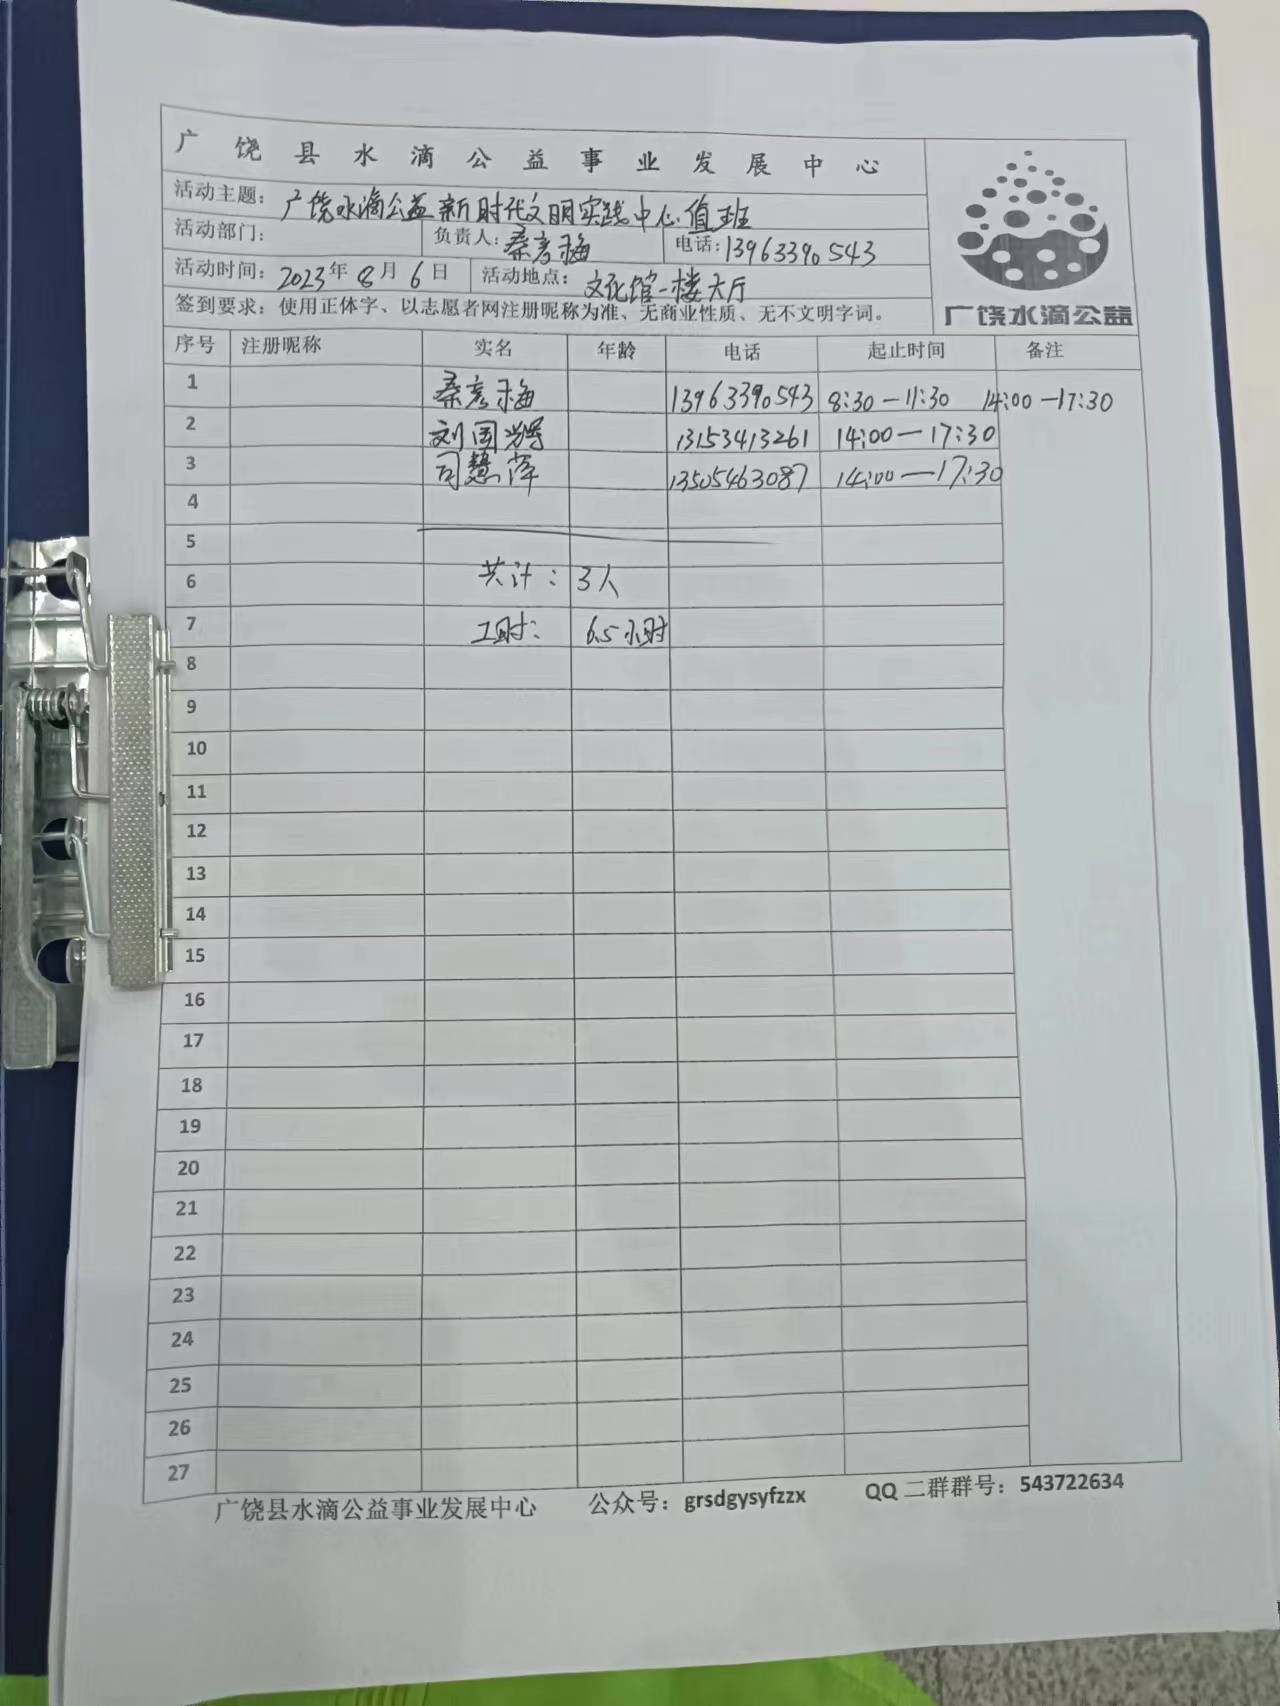 广饶县水滴公益事业发展中心
活动主题：广饶水滴公益新时代文明实践中心值班
活动部门： 负责人：桑彦梅 电话：13963390543
活动时间：2023年8月6日 活动地点：文化馆一楼大厅
签到要求：使用正体字、以志愿者网注册昵称为准、无商业性质、无不文明字词。
广饶水滴公益
序号 注册昵称 实名 年龄 电话 起止时间 备注
1 桑彦梅 13963390543 8:30—11:30 14:00—17:30
2 刘国辉 13153413261 14:00—17:30
3 司慧萍 13505463087 14:00—17:30
4
5
6 共计：3人
7 工时：6.5小时
8
9
10
11
12
13
14
15
16
17
18
19
20
21
22
23
24
25
26
27
广饶县水滴公益事业发展中心 公众号：grsdgysyfzzx QQ二群群号：543722634